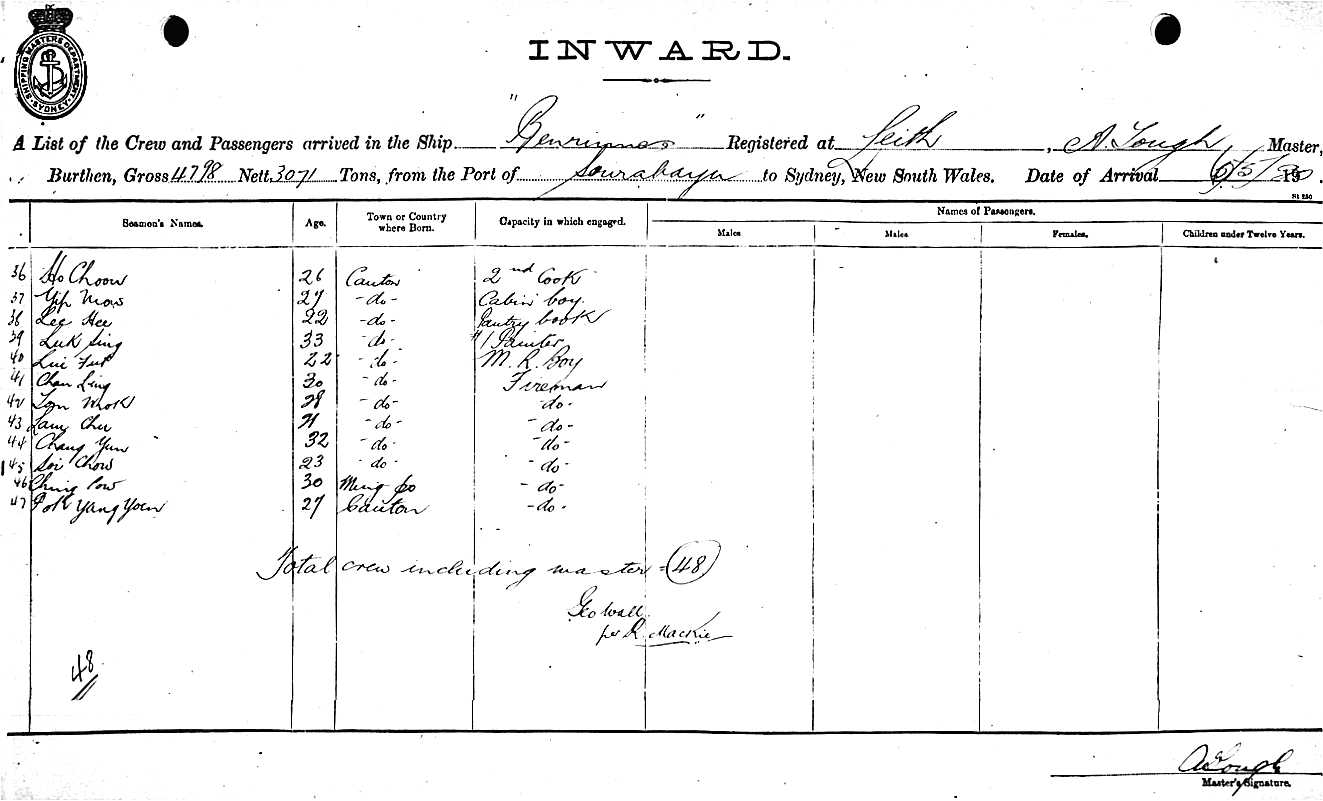 SHIPPING MASTERS DEPARTMENT
SYDNEY
INWARD.
A List of the Crew and Passengers arrived in the Ship "Benrinnes" Registered at Leith, A. Tough Master,
Burthen, Gross 4798 Nett 3071 Tons, from the Port of Sourabaya to Sydney, New South Wales. Date of Arrival 6/5/1920.
St 230
Seamen's Names. Age. Town or Country where Born. Capacity in which engaged. Names of Passengers.
Males Males Females. Children under Twelve Years.
36 Ho Choon 26 Canton 2nd Cook
37 Yip Mow 27 -do- Cabin boy.
38 Lee Hee 22 -do- Pantry book
39 Luk Sing 33 -do- #1 Painter
40 Lui Fuk 22 -do- M. R. Boy
41 Chan Ling 30 -do- Fireman
42 28 -do- -do-
43 Lam Chu 21 -do- -do-
44 Chang Yun 32 -do- -do-
45 Soi Chow 23 -do- -do-
46 Ching Pow 30 Ming po -do-
47 Pok Yang Yuen 27 Canton -do-
Total crew including master = 48
Geo Wall
per R. Mackie
48
A Tough
Master's Signature.